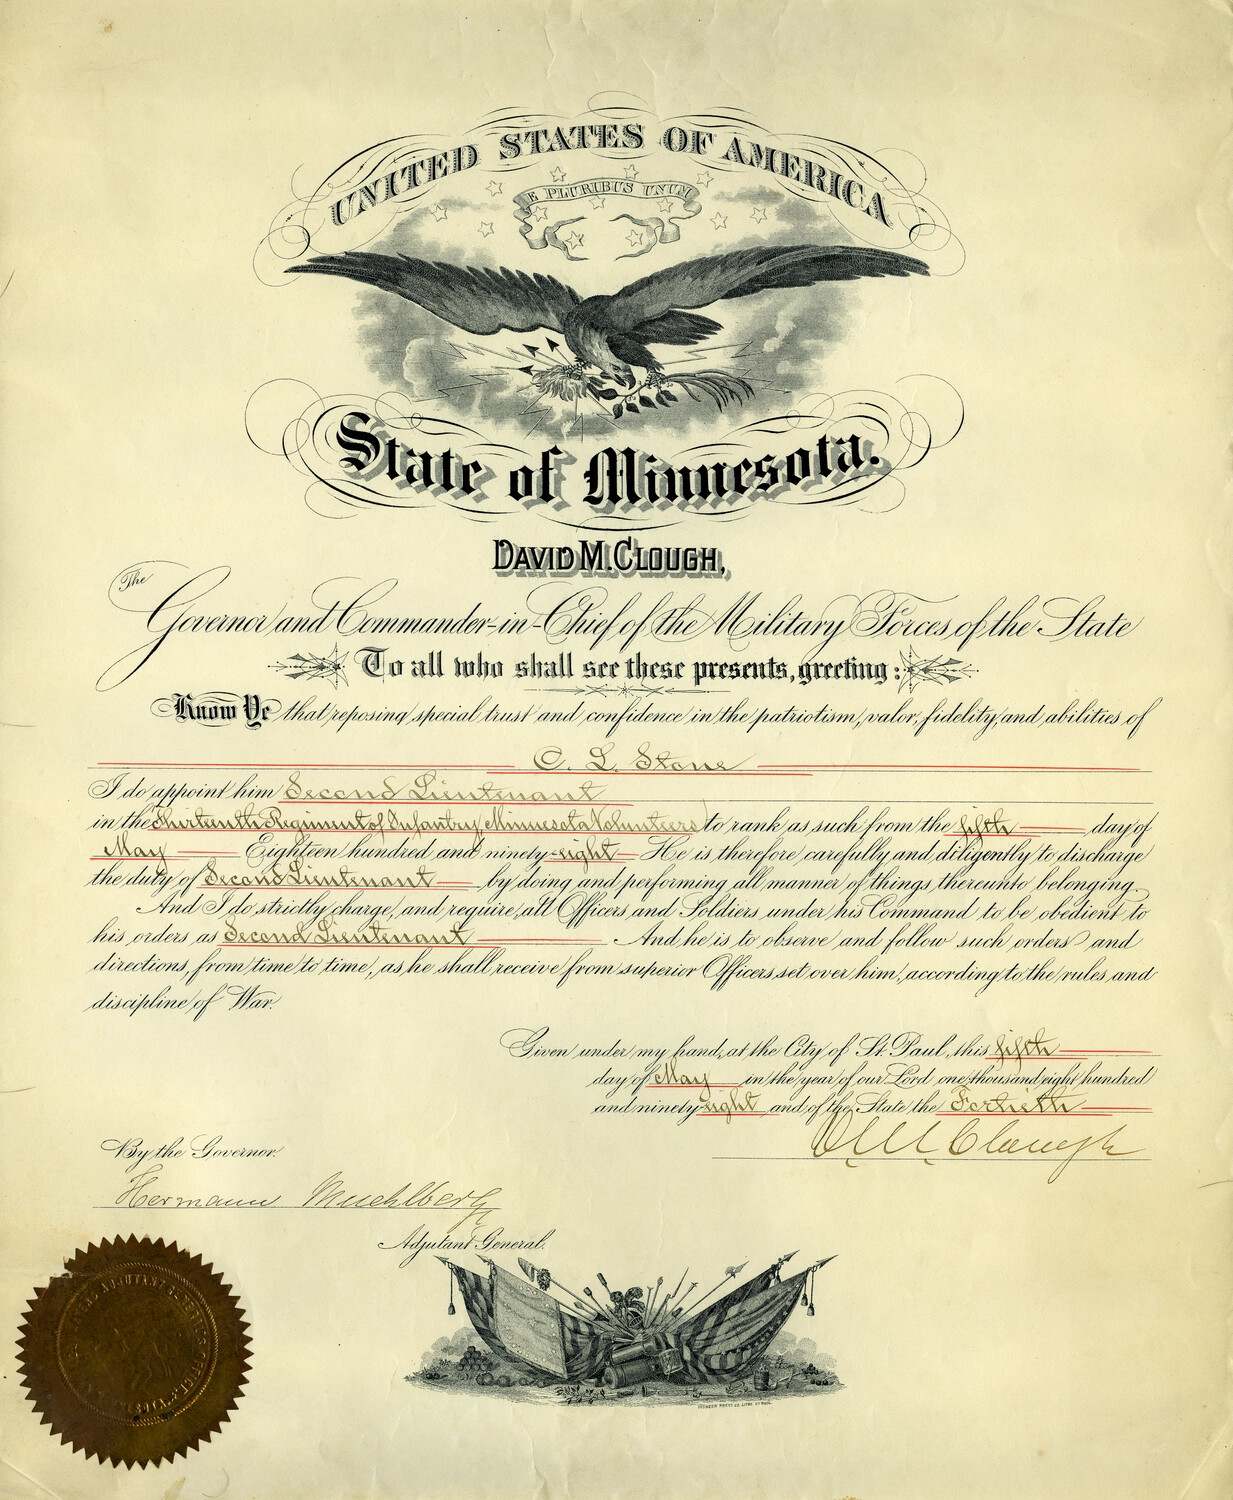 UNITED STATES OF AMERICA
E PLURIBUS UNUM
State of Minnesota.
DAVID M. CLOUGH,
The
Governor and Commander-in-Chief of the Military Forces, of the State
To all who shall see these presents, greeting:
Know Ye that reposing special trust and confidence in the patriotism, valor, fidelity, and abilities of
C. L. Stone
I do appoint him Second Lieutenant
in the Thirteenth Regiment of Infantry, Minnesota Volunteers to rank as such from the fifth day of
May Eighteen hundred and ninety-eight He is therefore carefully and diligently to discharge
the duty of Second Lieutenant by doing and performing all manner of things thereunto belonging.
And I do strictly charge, and require, all Officers and Soldiers under his Command to be obedient to
his orders as Second Lieutenant And he is to observe and follow such orders and
directions, from time to time, as he shall receive from superior Officers set over him, according to the rules and
discipline of War.
Given under my hand, at the City of St. Paul, this fifth
day of May in the year of our Lord one thousand eight hundred
and ninety-eight and of the State the Fortieth
D. M. Clough
By the Governor.
Hermann Muehlberg
Adjutant General.
ADJUTANT GENERAL'S OFFICE
PIONEER PRESS CO. LITHO. ST PAUL